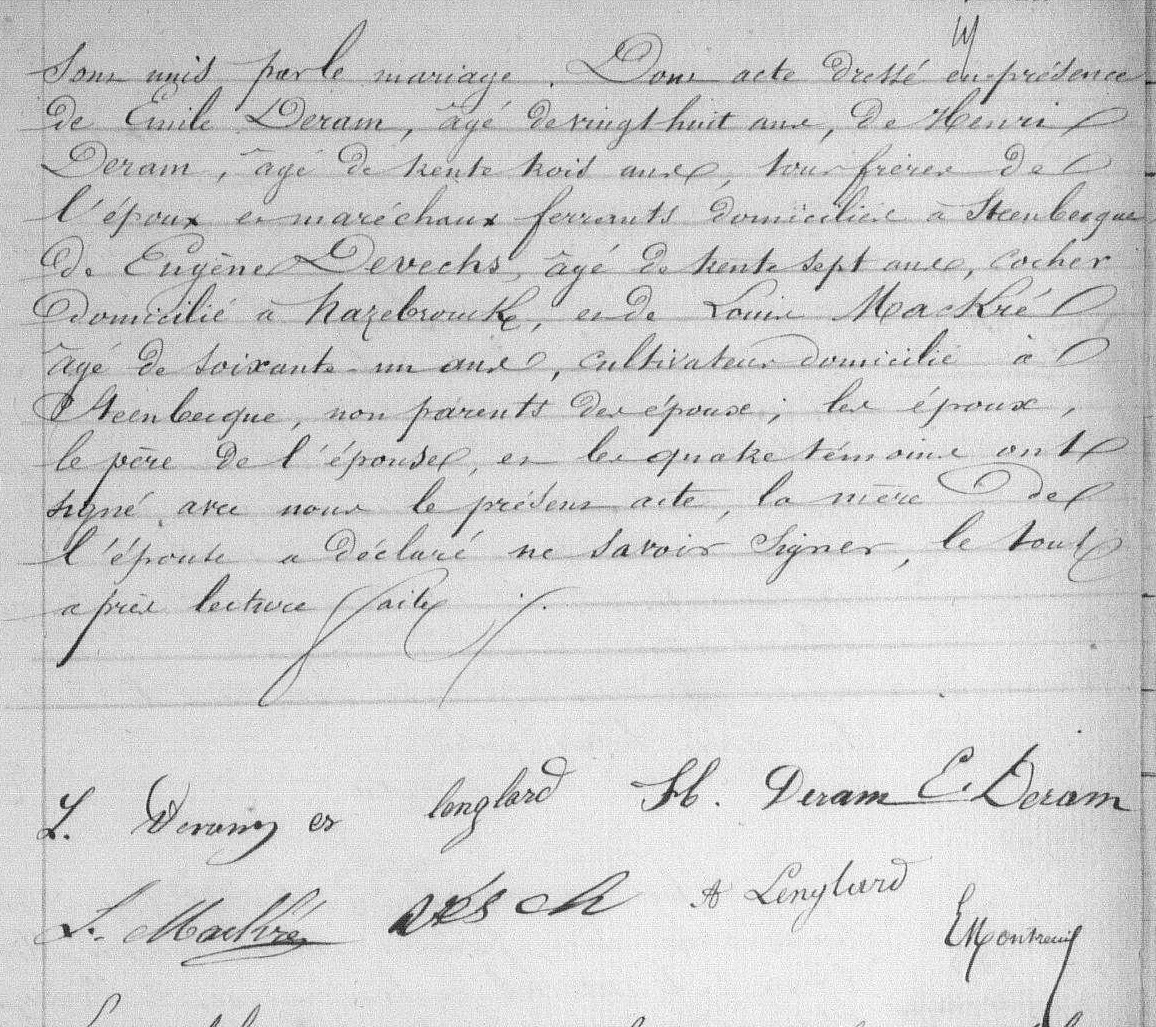 sont unis par le mariage. Dont acte dressé en présence
de Emile Deram, âgé de vingt huit ans, de Henri
Deram, âgé de trente trois ans, tous frères de
l'époux et maréchaux ferrants domiciliés à Steenbecque
de Eugène Devechs, âgé de trente sept ans, cocher
domicilié à hazebrouck, et de Louis Mackré
âgé de soixante-un ans, cultivateur domicilié à
Steenbecque, non parents des époux; les époux,
le père de l'épouse, et les quatre témoins ont
signé avec nous le présent acte, la mère de
l'épouse a déclaré ne savoir signer, le tout
après lecture faite ./.
L. Deram et lenglard H. Deram E. Deram
L. Mackré A Lenglard
E Montreuil